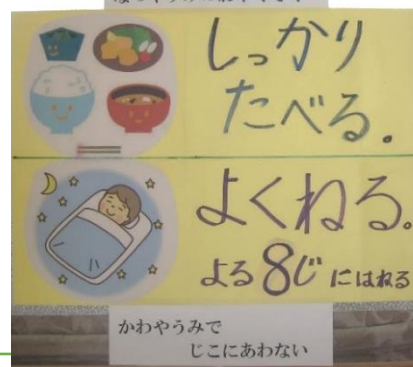 しっかり
たべる。
よくねる。
よる8じにはねる
かわやうみで
じこにあわない